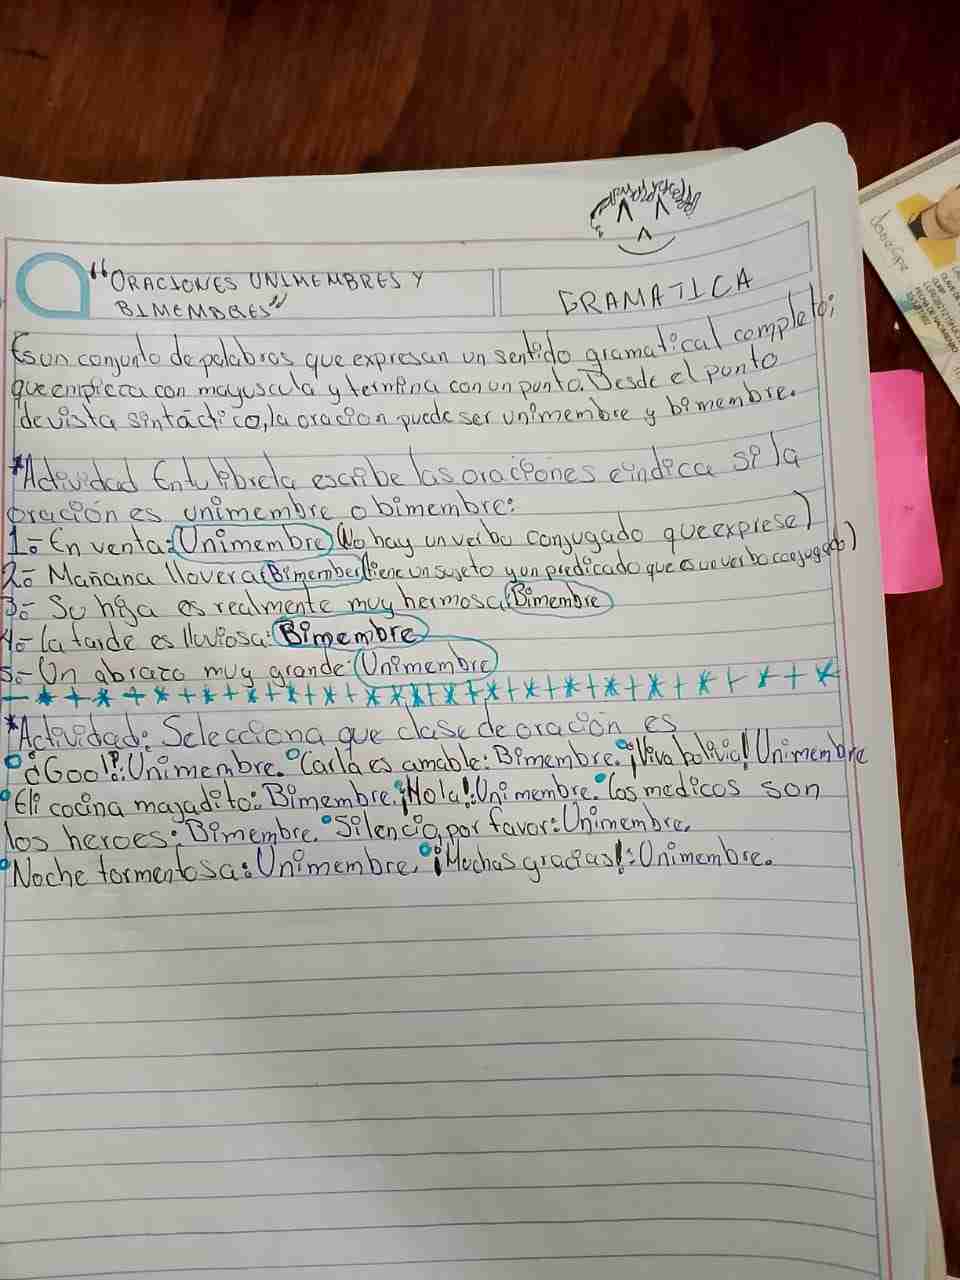 "ORACIONES UNIMEMBRES Y
BIMEMBRES"
GRAMATICA
Es un conjunto de palabras que expresan un sentido gramatical completo;
que empieza con mayuscula y termina con un punto. Desde el punto
de vista sintáctico, la oracion puede ser unimembre y bimembre.
*Actividad En tu libreta escribe las oraciones e indica si la
oración es unimembre o bimembre:
1:- En venta: Unimembre (No hay un verbo conjugado que exprese)
2:- Mañana llovera Bimember (tiene un sujeto y un predicado que es un verbo conjugado)
3:- Su hija es realmente muy hermosa: Bimembre
4:- La tarde es lluviosa: Bimembre
5:- Un abrazo muy grande: Unimembre
*Actividad: Selecciona que clase de oración es
°¡Gool!: Unimembre. °Carla es amable: Bimembre. °¡Viva bolivia! Unimembre
°Eli cocina majadito: Bimembre. °¡Hola!: Unimembre. °Los medicos son
los heroes: Bimembre. °Silencio, por favor: Unimembre.
°Noche tormentosa: Unimembre. °¡Muchas gracias!: Unimembre.